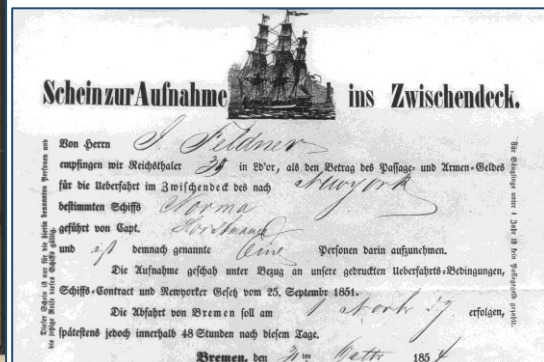 Schein zur Aufnahme ins Zwischendeck.
Von Herrn J. Feldner
empfingen wir Reichsthaler in Ld'or, als den Betrag des Passage- und Armen-Geldes
für die Ueberfahrt im Zwischendeck des nach Newyork
bestimmten Schiffs Norma
geführt von Capt. Horstmann
und ist demnach genannte Eine Personen darin aufzunehmen.
Die Aufnahme geschah unter Bezug an unsere gedruckten Ueberfahrts-Bedingungen,
Schiffs-Contract und Newyorker Gesetz vom 25. Septembr 1851.
Die Abfahrt von Bremen soll am erfolgen,
spätestens jedoch innerhalb 48 Stunden nach diesem Tage.
Bremen, den 185
Dieser Schein ist nur für die hierin benannten Personen und
die jetzige Reise dieses Schiffs gültig.
Für Säuglinge unter 1 Jahr ist kein Passagegeld gezahlt.